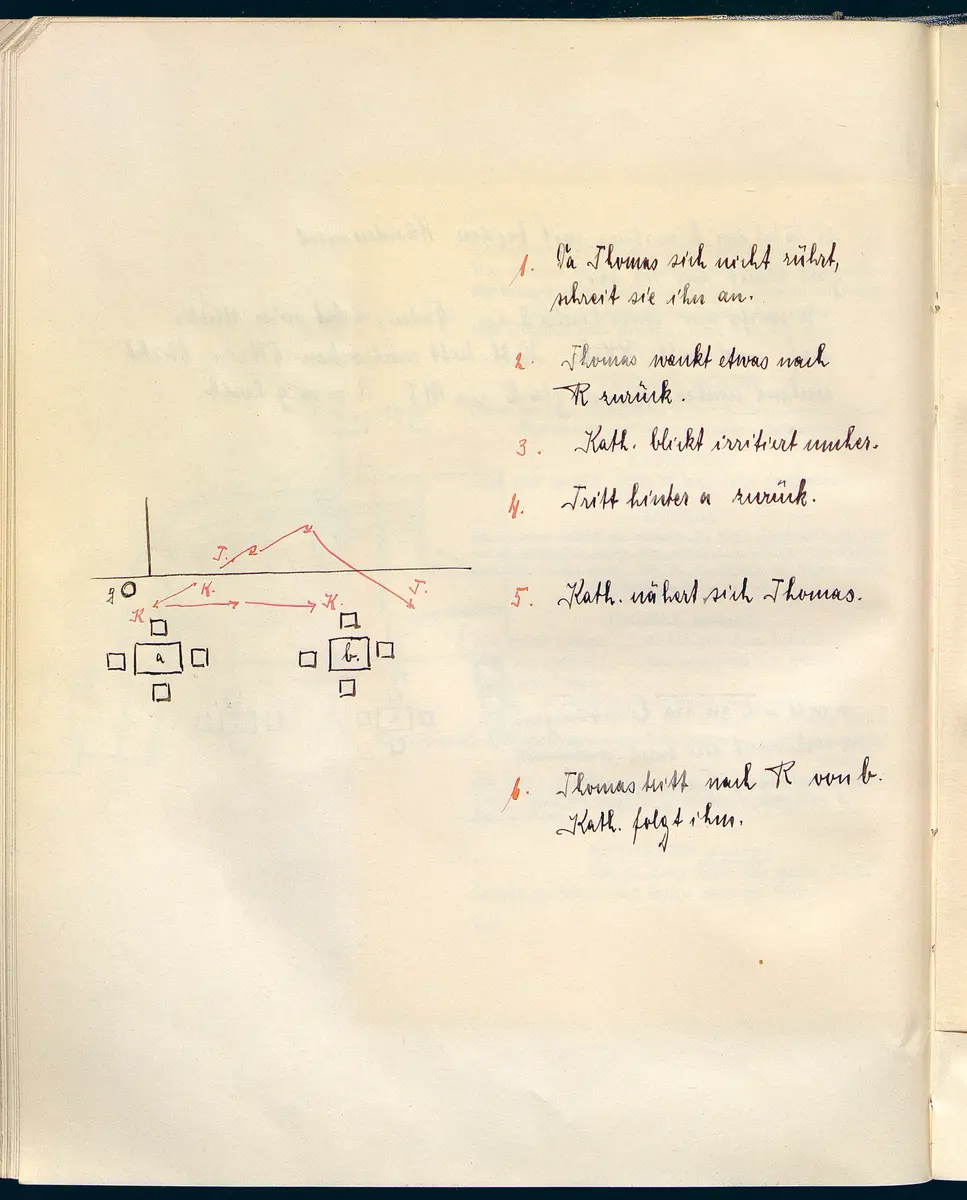 1. Da Thomas sich nicht rührt,
schreit sie ihn an.
2. Thomas wankt etwas nach
R zurück.
3. Kath. blickt irritiert umher.
4. Tritt hinter a zurück.
5. Kath. nähert sich Thomas.
6. Thomas tritt nach R von b.
Kath. folgt ihm.
T.
g K. T.
K K.
a b.